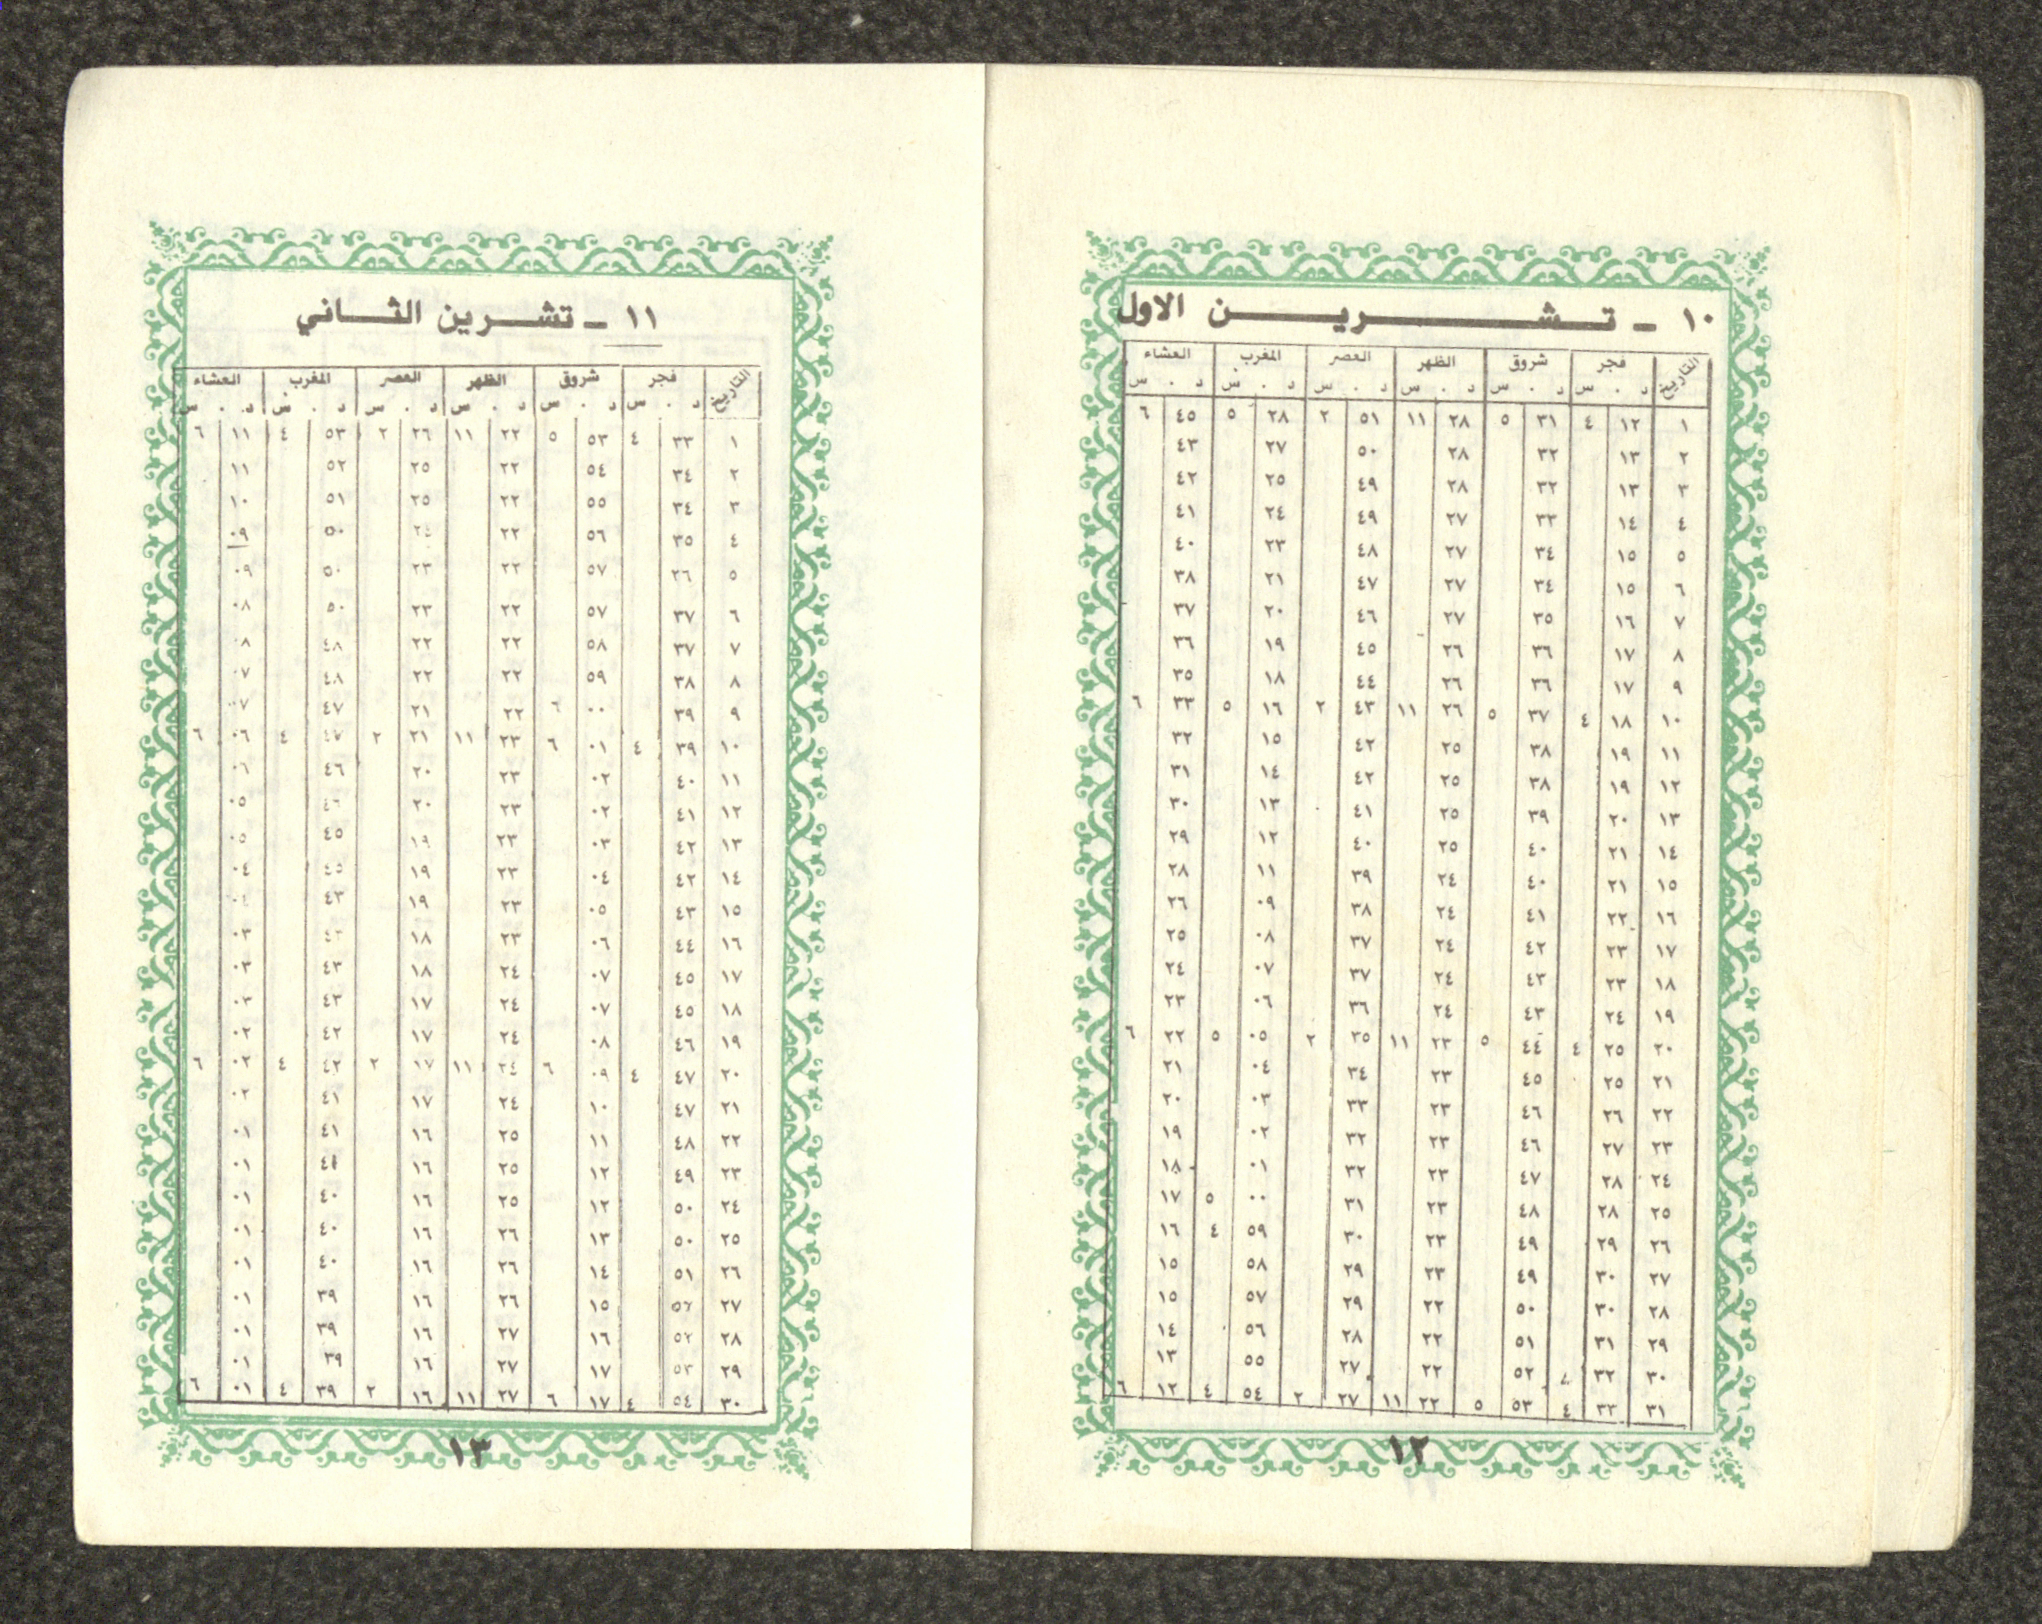 ١٠ - تشرين الاول
التاريخ فجر شروق الظهر العصر المغرب العشاء
د . س د . س د . س د . س د . س د . س
١ ١٢ ٤ ٣١ ٥ ٢٨ ١١ ٥١ ٢ ٢٨ ٥ ٤٥ ٦
٢ ١٣ ٣٢ ٢٨ ٥٠ ٢٧ ٤٣
٣ ١٣ ٣٢ ٢٨ ٤٩ ٢٥ ٤٢
٤ ١٤ ٣٣ ٢٧ ٤٩ ٢٤ ٤١
٥ ١٥ ٣٤ ٢٧ ٤٨ ٢٣ ٤٠
٦ ١٥ ٣٤ ٢٧ ٤٧ ٢١ ٣٨
٧ ١٦ ٣٥ ٢٧ ٤٦ ٢٠ ٣٧
٨ ١٧ ٣٦ ٢٦ ٤٥ ١٩ ٣٦
٩ ١٧ ٣٦ ٢٦ ٤٤ ١٨ ٣٥
١٠ ١٨ ٤ ٣٧ ٥ ٢٦ ١١ ٤٣ ٢ ١٦ ٥ ٣٣ ٦
١١ ١٩ ٣٨ ٢٥ ٤٢ ١٥ ٣٢
١٢ ١٩ ٣٨ ٢٥ ٤٢ ١٤ ٣١
١٣ ٢٠ ٣٩ ٢٥ ٤١ ١٣ ٣٠
١٤ ٢١ ٤٠ ٢٥ ٤٠ ١٢ ٢٩
١٥ ٢١ ٤٠ ٢٤ ٣٩ ١١ ٢٨
١٦ ٢٢ ٤١ ٢٤ ٣٨ ٠٩ ٢٦
١٧ ٢٣ ٤٢ ٢٤ ٣٧ ٠٨ ٢٥
١٨ ٢٣ ٤٣ ٢٤ ٣٧ ٠٧ ٢٤
١٩ ٢٤ ٤٣ ٢٤ ٣٦ ٠٦ ٢٣
٢٠ ٢٥ ٤ ٤٤ ٥ ٢٣ ١١ ٣٥ ٢ ٠٥ ٥ ٢٢ ٦
٢١ ٢٥ ٤٥ ٢٣ ٣٤ ٠٤ ٢١
٢٢ ٢٦ ٤٦ ٢٣ ٣٣ ٠٣ ٢٠
٢٣ ٢٧ ٤٦ ٢٣ ٣٢ ٠٢ ١٩
٢٤ ٢٨ ٤٧ ٢٣ ٣٢ ٠١ ١٨
٢٥ ٢٨ ٤٨ ٢٣ ٣١ ٠٠ ٥ ١٧
٢٦ ٢٩ ٤٩ ٢٣ ٣٠ ٥٩ ٤ ١٦
٢٧ ٣٠ ٤٩ ٢٣ ٢٩ ٥٨ ١٥
٢٨ ٣٠ ٥٠ ٢٢ ٢٩ ٥٧ ١٥
٢٩ ٣١ ٥١ ٢٢ ٢٨ ٥٦ ١٤
٣٠ ٣٢ ٥٢ ٢٢ ٢٧ ٥٥ ١٣
٣١ ٣٣ ٤ ٥٣ ٥ ٢٢ ١١ ٢٧ ٢ ٥٤ ٤ ١٢ ٦
١٢
١١ - تشرين الثاني
التاريخ فجر شروق الظهر العصر المغرب العشاء
د . س د . س د . س د . س د . س د . س
١ ٣٣ ٤ ٥٣ ٥ ٢٢ ١١ ٢٦ ٢ ٥٣ ٤ ١١ ٦
٢ ٣٤ ٥٤ ٢٢ ٢٥ ٥٢ ١١
٣ ٣٤ ٥٥ ٢٢ ٢٥ ٥١ ١٠
٤ ٣٥ ٥٦ ٢٢ ٢٤ ٥٠ ٠٩
٥ ٢٦ ٥٧ ٢٢ ٢٣ ٥٠ ٠٩
٦ ٣٧ ٥٧ ٢٢ ٢٣ ٥٠ ٠٨
٧ ٣٧ ٥٨ ٢٢ ٢٢ ٤٨ ٠٨
٨ ٣٨ ٥٩ ٢٢ ٢٢ ٤٨ ٠٧
٩ ٣٩ ٠٠ ٦ ٢٢ ٢١ ٤٧ ٠٧
١٠ ٣٩ ٤ ٠١ ٦ ٢٣ ١١ ٢١ ٢ ٤ ٠٦ ٦
١١ ٤٠ ٠٢ ٢٣ ٢٠ ٤٦ ٠٦
١٢ ٤١ ٠٢ ٢٣ ٢٠ ٤٦ ٠٥
١٣ ٤٢ ٠٣ ٢٣ ١٩ ٤٥ ٠٥
١٤ ٤٢ ٠٤ ٢٣ ١٩ ٤٥ ٠٤
١٥ ٤٣ ٠٥ ٢٣ ١٩ ٤٣ ٠٤
١٦ ٤٤ ٠٦ ٢٣ ١٨ ٤٣ ٠٣
١٧ ٤٥ ٠٧ ٢٤ ١٨ ٤٣ ٠٣
١٨ ٤٥ ٠٧ ٢٤ ١٧ ٤٣ ٠٣
١٩ ٤٦ ٠٨ ٢٤ ١٧ ٤٢ ٠٢
٢٠ ٤٧ ٤ ٠٩ ٦ ٢٤ ١١ ١٧ ٢ ٤٢ ٤ ٠٢ ٦
٢١ ٤٧ ١٠ ٢٤ ١٧ ٤١ ٠٢
٢٢ ٤٨ ١١ ٢٥ ١٦ ٤١ ٠١
٢٣ ٤٩ ١٢ ٢٥ ١٦ ٤١ ٠١
٢٤ ٥٠ ١٢ ٢٥ ١٦ ٤٠ ٠١
٢٥ ٥٠ ١٣ ٢٦ ١٦ ٤٠ ٠١
٢٦ ٥١ ١٤ ٢٦ ١٦ ٤٠ ٠١
٢٧ ٥٢ ١٥ ٢٦ ١٦ ٣٩ ٠١
٢٨ ٥٢ ١٦ ٢٧ ١٦ ٣٩ ٠١
٢٩ ٥٣ ١٧ ٢٧ ١٦ ٣٩ ٠١
٣٠ ٥٤ ٤ ١٧ ٦ ٢٧ ١١ ١٦ ٢ ٣٩ ٤ ٠١ ٦
١٣